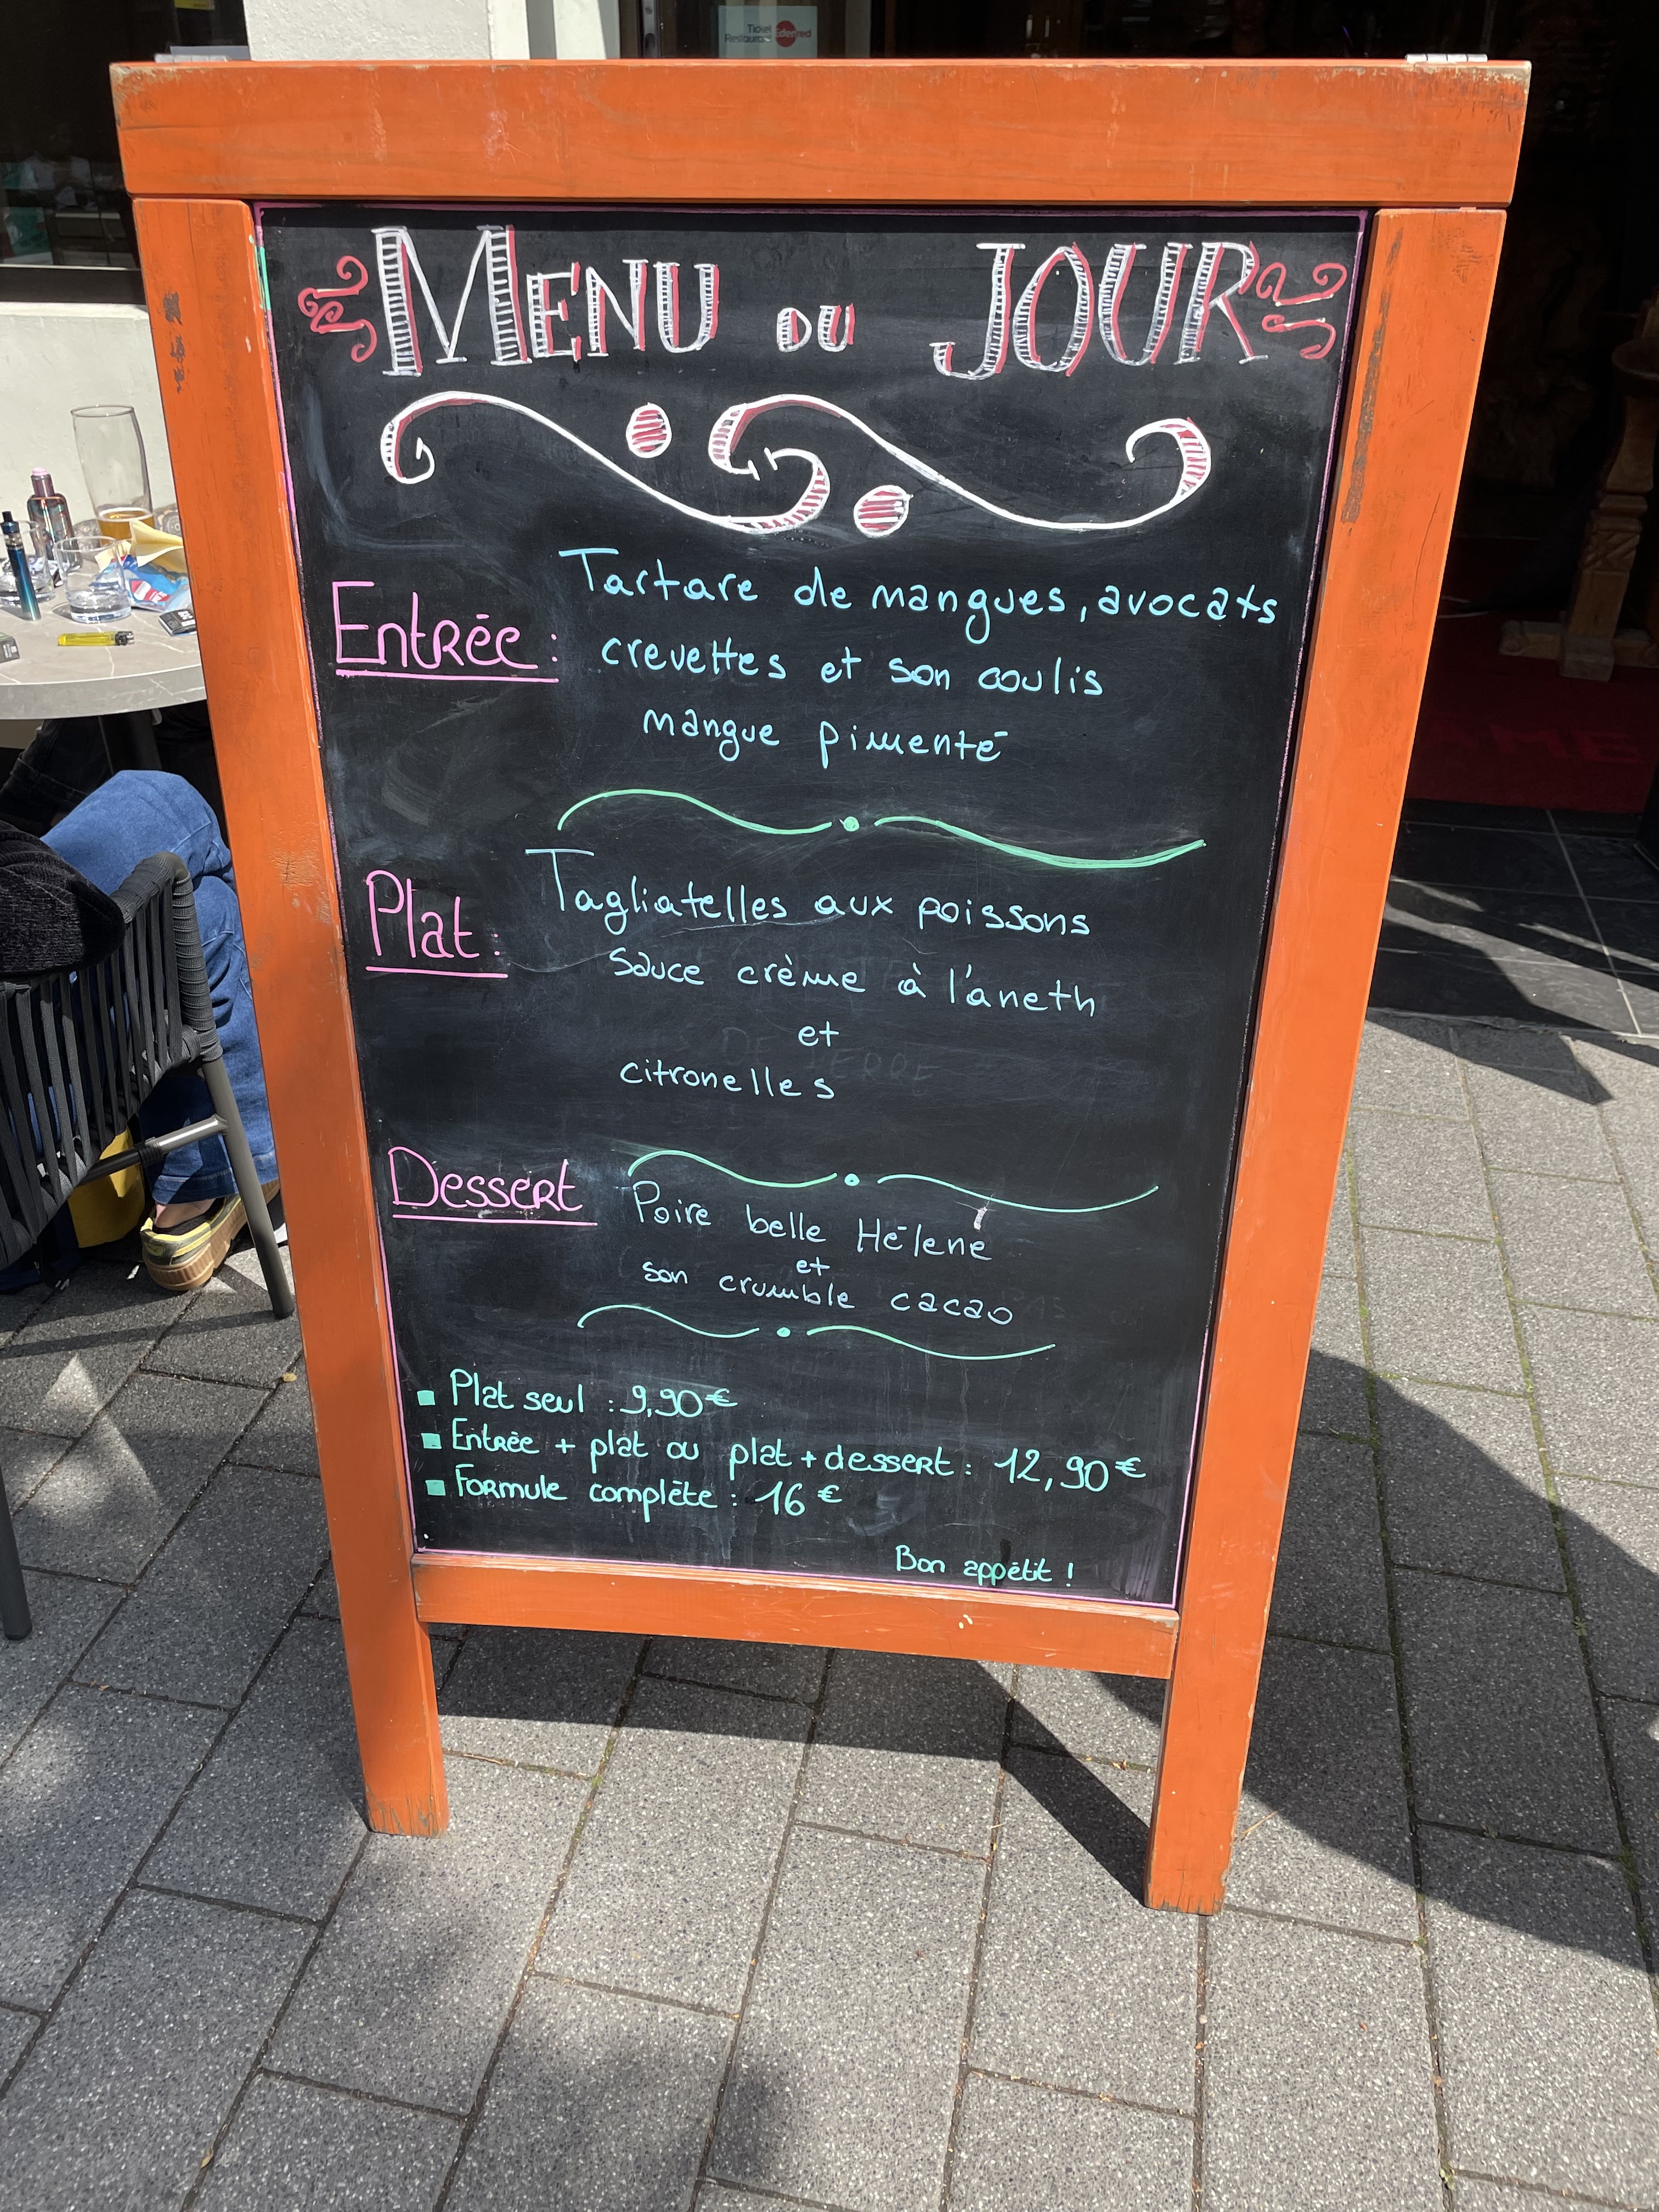 Ticket
Restaurant Edenred
MENU DU JOUR
Entrée :
Tartare de mangues, avocats
crevettes et son coulis
mangue pimenté
Plat :
Tagliatelles aux poissons
sauce crème à l'aneth
et
citronelles
Dessert
Poire belle Hélene
et
son crumble cacao
▪ Plat seul : 9,90 €
▪ Entrée + plat ou plat + dessert : 12,90 €
▪ Formule complète : 16 €
Bon appétit !